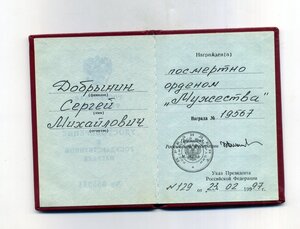 Добрынин
(фамилия)
Сергей
(имя)
Михайлович
(отчество)
Награжден(а)
посмертно
орденом
„Мужества"
Награда № 19567
Указ Президента
Российской Федерации
№ 129 от 23. 02 1997 г.